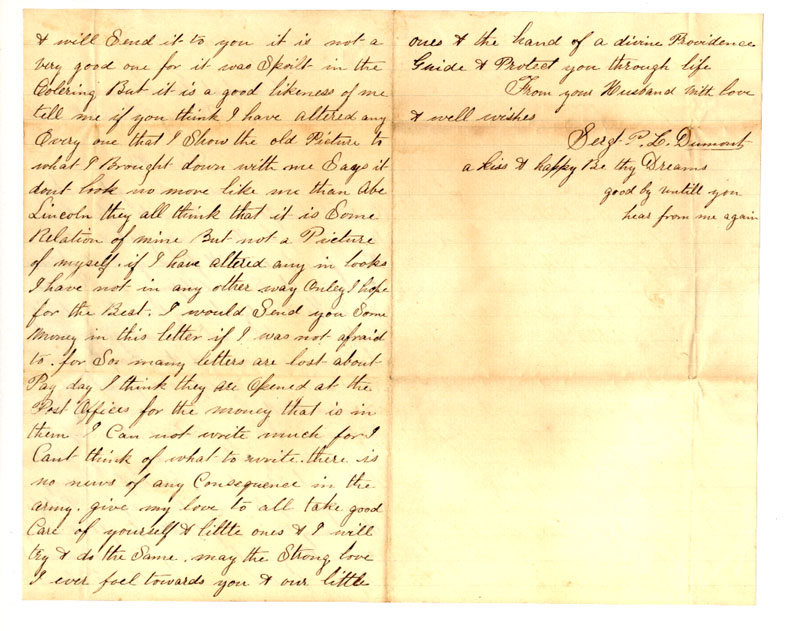 & will Send it to you it is not a
very good one for it was Spoilt in the
Colering But it is a good likeness of me
tell me if you think I have altered any
Every one that I Show the old Picture to
what I Brought down with me Says it
dont look no more like me than Abe
Lincoln they all think that it is Some
Relation of mine But not a Picture
of myself. if I have altered any in looks
I have not in any other way Onley I hope
for the Best. I would Send you Some
Money in this letter if I was not afraid
to. for Soo many letters are lost about
Pay day I think they are Opened at the
Post Offices for the money that is in
them I Can not write much for I
Cant think of what to write. there is
no news of any Consequence in the
army. give my love to all take good
Care of yourself & little ones & I will
try & do the Same. may the Strong love
I ever feel towards you & our little
ones & the hand of a divine Providence
Guide & Protect you through life
From your Husband with love
& well wishes
Sergt. P. L. Dumont
a kiss & happy Be thy Dreams
good by untill you
hear from me again